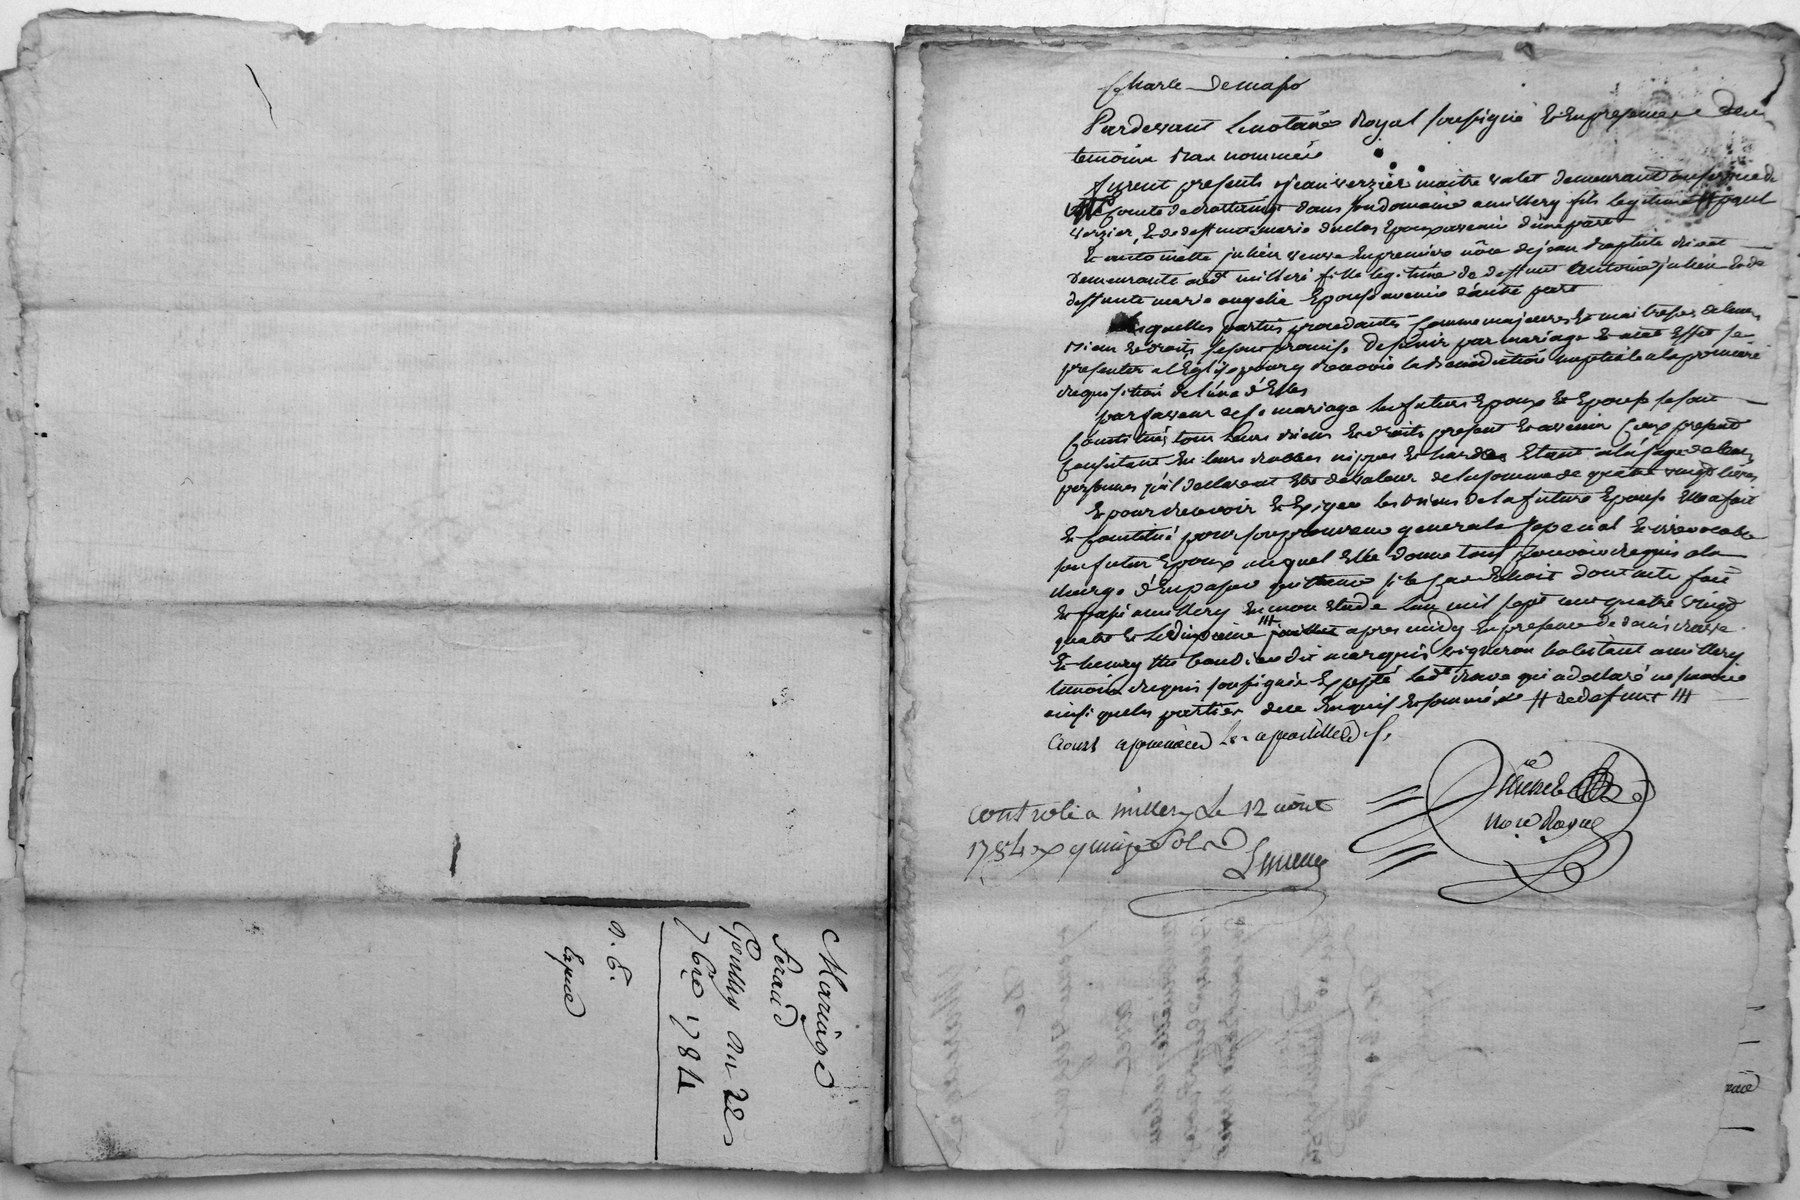 Mariage
Feraud
Goutty Du 22
7bre 1784
n. C.
Charle Demaso
Pardevant Lenotaire Royal soussigné & Enpresence Des
temoins Bas nommés
furent presents jean verzier maitre valet demeurant auservice de
Comte de dans sondomaine amillery fils legitime # paul
verzier, & de deffunte marie duclos Epoux avenir d'une part
& antoinette julien veuve Enpremière nôce dejean Baptiste
Demeurante audt milleri fille legitime de deffunt antoine julien & de
deffunte marie angelie Epouse avenir d'autre part
Lesquelles parties procedantes Comme majeures & maitresses de leurs
Biens & droits se sont promis de s'unir par mariage & acet Effet se
presenter al'Eglise pour y Recevoir la Benediction nuptiale ala première
Requisition de l'une d'Elles
par faveur de ce mariage les futurs Epoux & Epouse se sont
Constitués tous leurs Biens & droits present & avenir Ceux present
Consistant En leurs Robbes nippes & hardes Etant à l'usage de leurs
personnes qu'il declarent Etre de valeur de la somme de quatre vingt livres
& pour Recevoir & Exiger les Biens de la future Epouse Elle a fait
& Constitué pour son procureur general & special & irrevocable
son futur Epoux auquel Elle donne tout pouvoir Requis a la
charge d'En passer quittance si le Cas Echoit dont acte fait
& passé amillery En mon Etude L'an mil sept cent quatre vingt
quatre & Le dixieme ### juillet apres midy En presence de denis crosse
& henry baudieu dit marquis vigneron habitant amillery
temoins Requis soussignés Excepté ledt qui a declaré ne savoir
ainsi que les parties de ce Enquis & sommés # dedefunt ###
aoust approuvées les apostilles ./.
nore Royal
Controlé a millery Le 12 aout
1784 R quinze sols